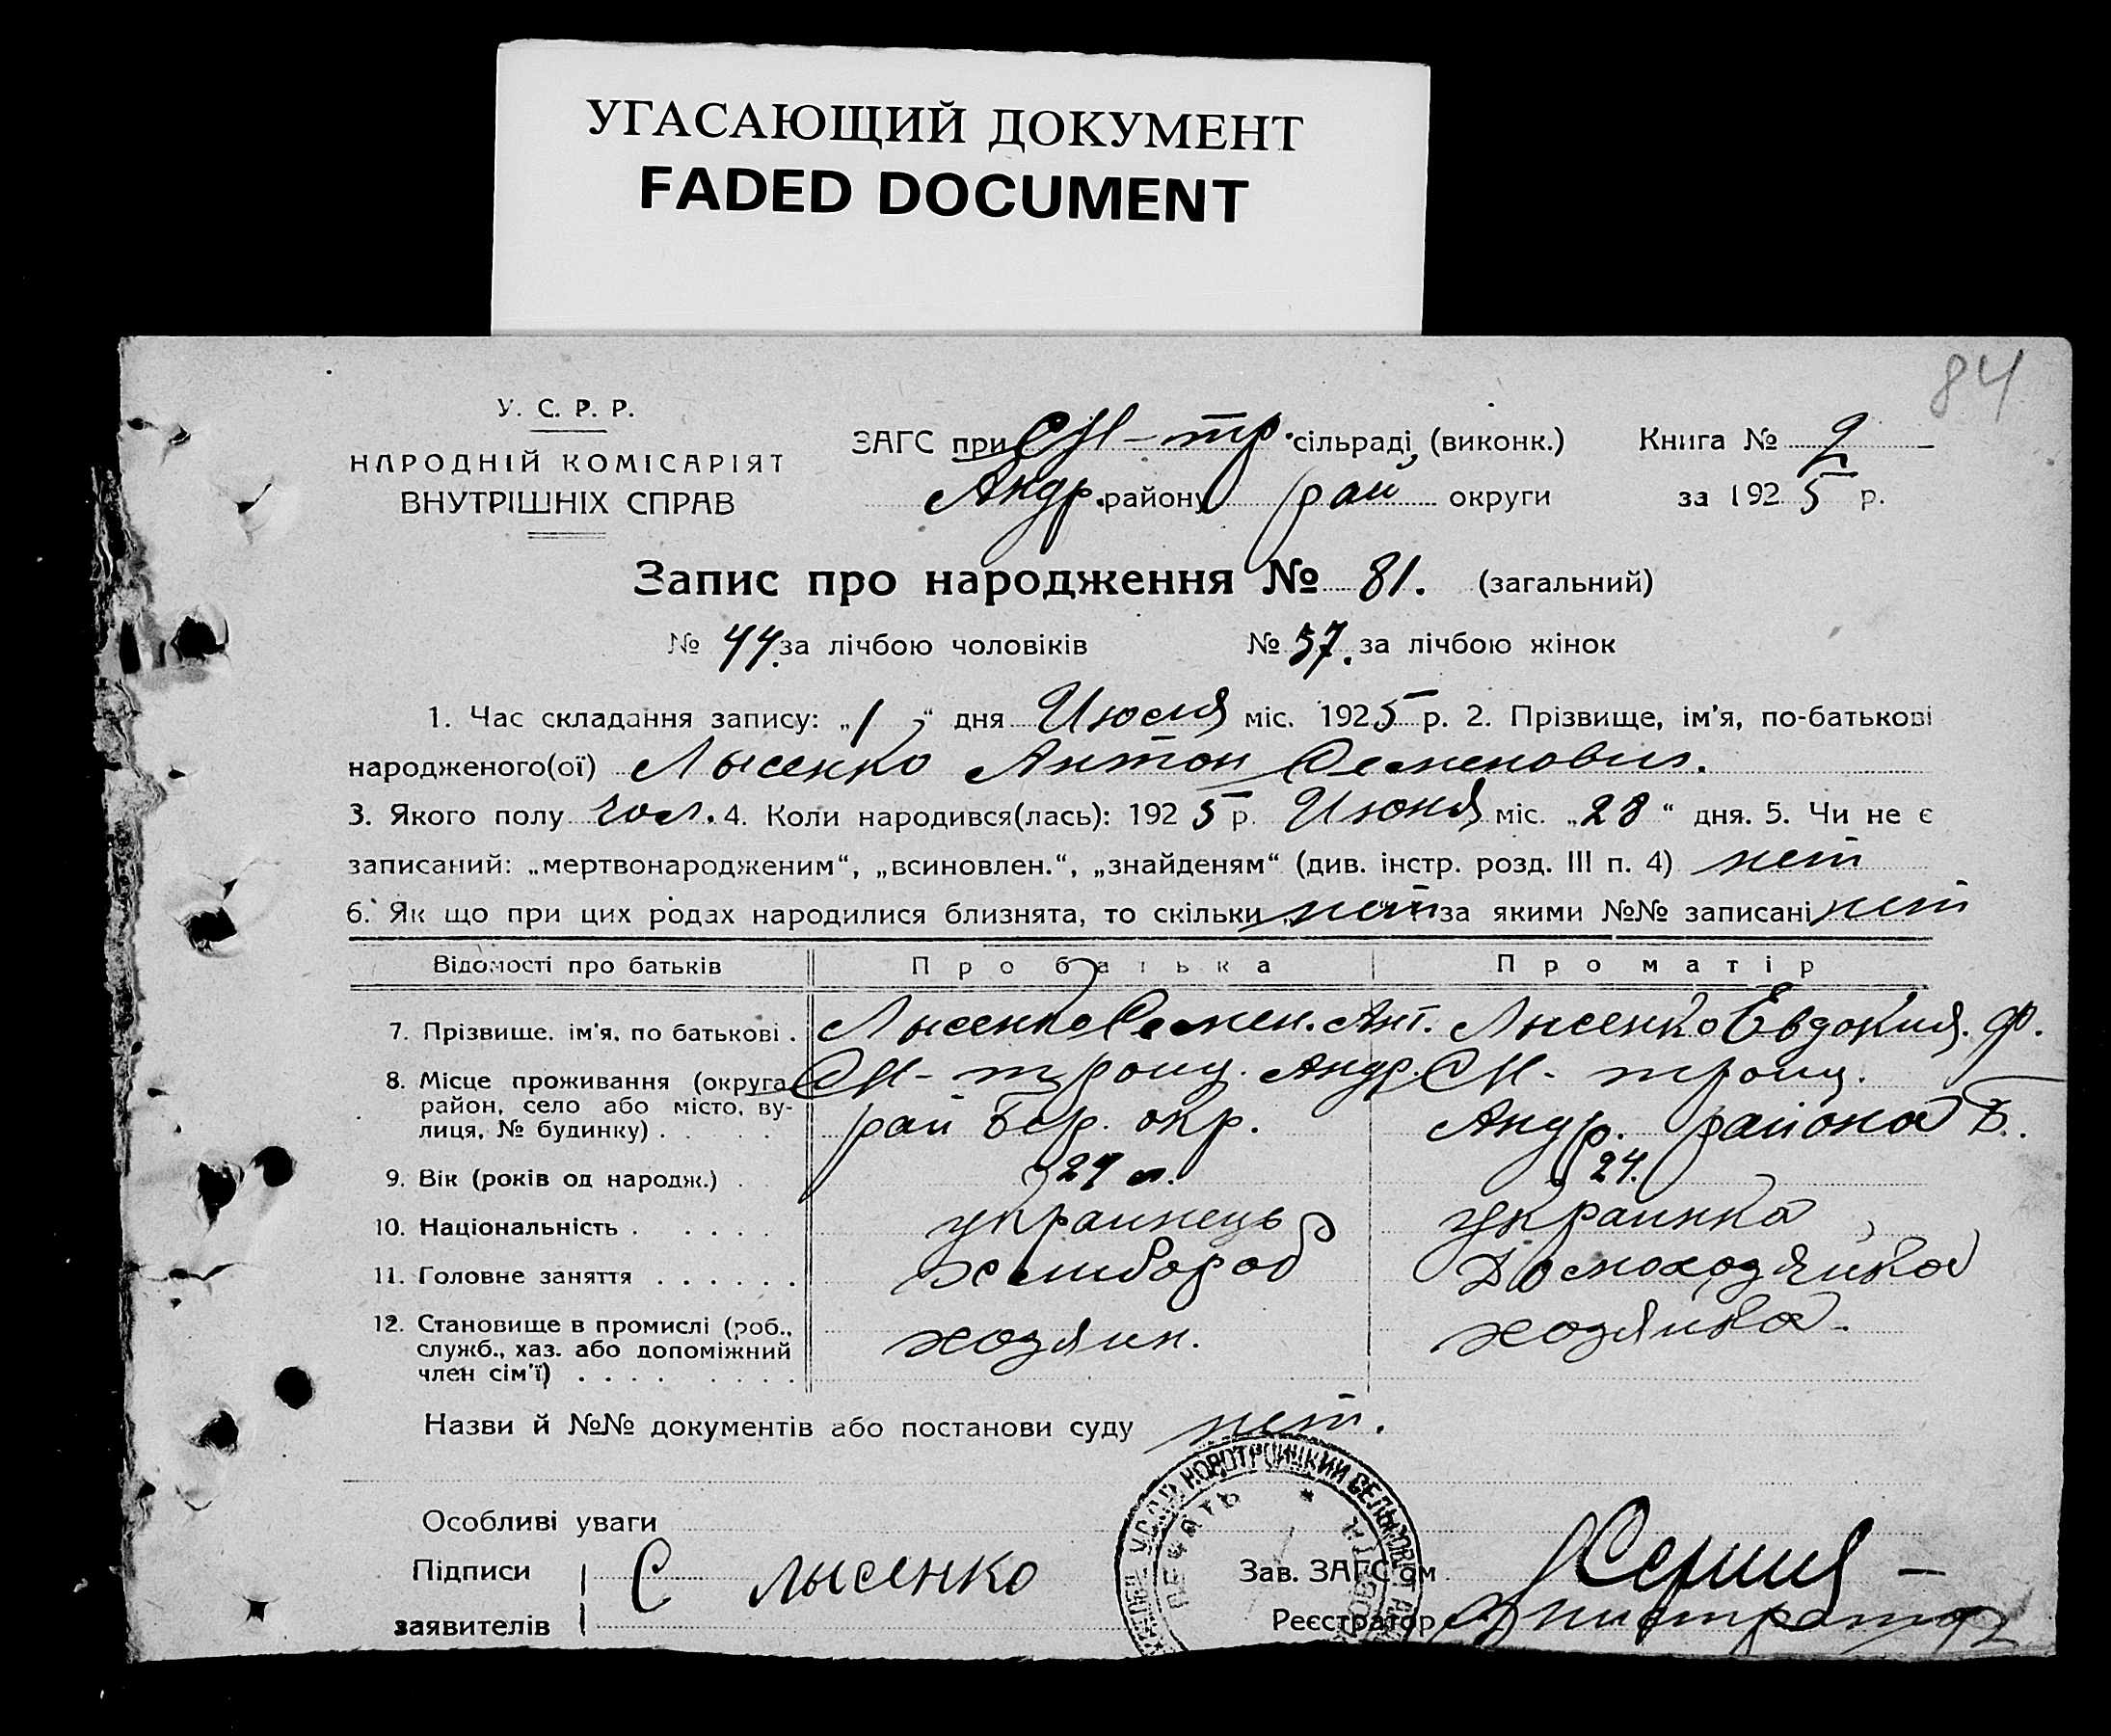 УГАСАЮЩИЙ ДОКУМЕНТ
FADED DOCUMENT
84
У. С. Р. Р.
НАРОДНІЙ КОМІСАРІЯТ
ВНУТРІШНІХ СПРАВ
ЗАГС при Н-тр. сільраді, (виконк.)
Андр. району рай округи
Книга № 2
за 1925 р.
Запис про народження № 81. (загальний)
№ 44. за лічбою чоловіків № 37. за лічбою жінок
1. Час складання запису: „1“ дня Июля міс. 1925 р. 2. Прізвище, ім'я, по-батькові
народженого(ої) Лысенко Антон Семенович.
3. Якого полу чол. 4. Коли народився(лась): 1925 р. Июня міс. „28“ дня. 5. Чи не є
записаний: „мертвонародженим“, „всиновлен.“, „знайденям“ (див. інстр. розд. III п. 4) нет
6. Як що при цих родах народилися близнята, то скільки нет за якими №№ записані нет
Відомості про батьків Про батька Про матір
7. Прізвище, ім'я, по батькові . Лысенко Семен. Ант. Лысенко Евдокия. Ф.
8. Місце проживання (округа Н-троиц. Андр. Н-троиц.
район, село або місто, ву-
лиця, № будинку) . . . . рай Бер. окр. Андр. района Б.
9. Вік (років од народж.) . 29 л. 24.
10. Національність . . . . . украинець украинка
11. Головне заняття . . . . . . хлибороб Домохозяйка
12. Становище в промислі (роб., хозяин. хозяйка
служб., хаз. або допоміжний
член сім'ї) . . . . . . . .
Назви й №№ документів або постанови суду нет.
Особливі уваги
УССР НОВОТРОИЦКИЙ СЕЛЬСОВЕТ
ПЕЧАТЬ
Підписи С лысенко Зав. ЗАГС'ом
заявителів Реєстратор